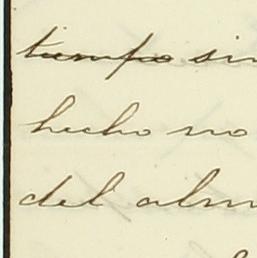 tiempo sin
hecho no
del alm